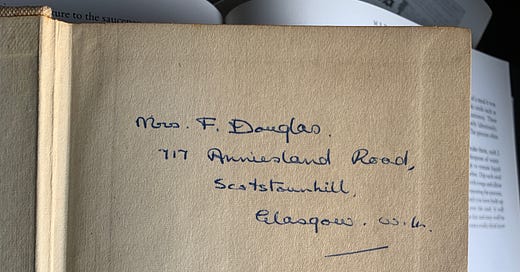 ure to the saucep
Mrs. F. Douglas.
717 Anniesland Road,
Scotstounhill,
Glasgow. W.4.